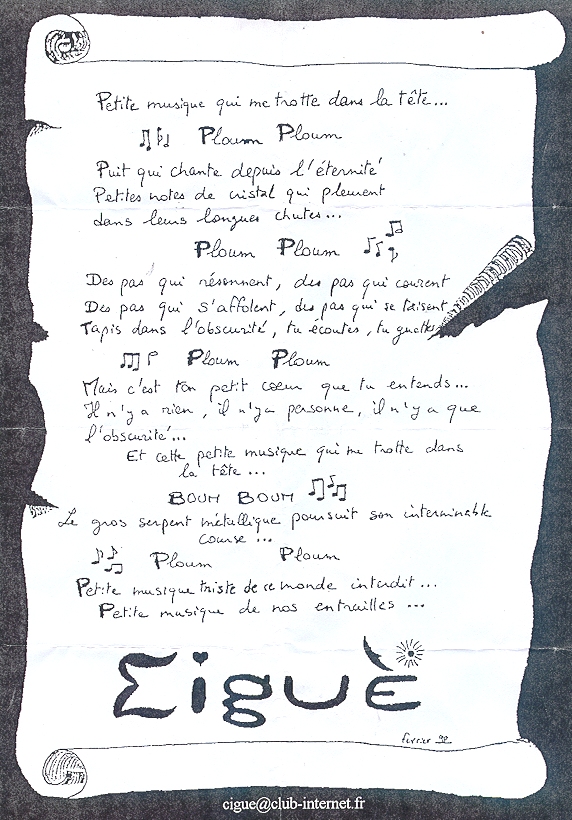 Petite musique qui me trotte dans la tête...
Ploum Ploum
Puit qui chante depuis l'éternité
Petites notes de cristal qui pleurent
dans leurs longues chutes...
Ploum Ploum
Des pas qui résonnent, des pas qui courent
Des pas qui s'affolent, des pas qui se taisent
Tapis dans l'obscurité, tu écoutes, tu guettes
Ploum Ploum
Mais c'est ton petit coeur que tu entends...
Il n'y a rien, il n'y a personne, il n'y a que
l'obscurité...
Et cette petite musique qui me trotte dans
la tête...
BOUM BOUM
Le gros serpent métallique poursuit son interminable
course...
Ploum Ploum
Petite musique triste de ce monde interdit...
Petite musique de nos entrailles...
Ciguè
février 92
cigue@club-internet.fr